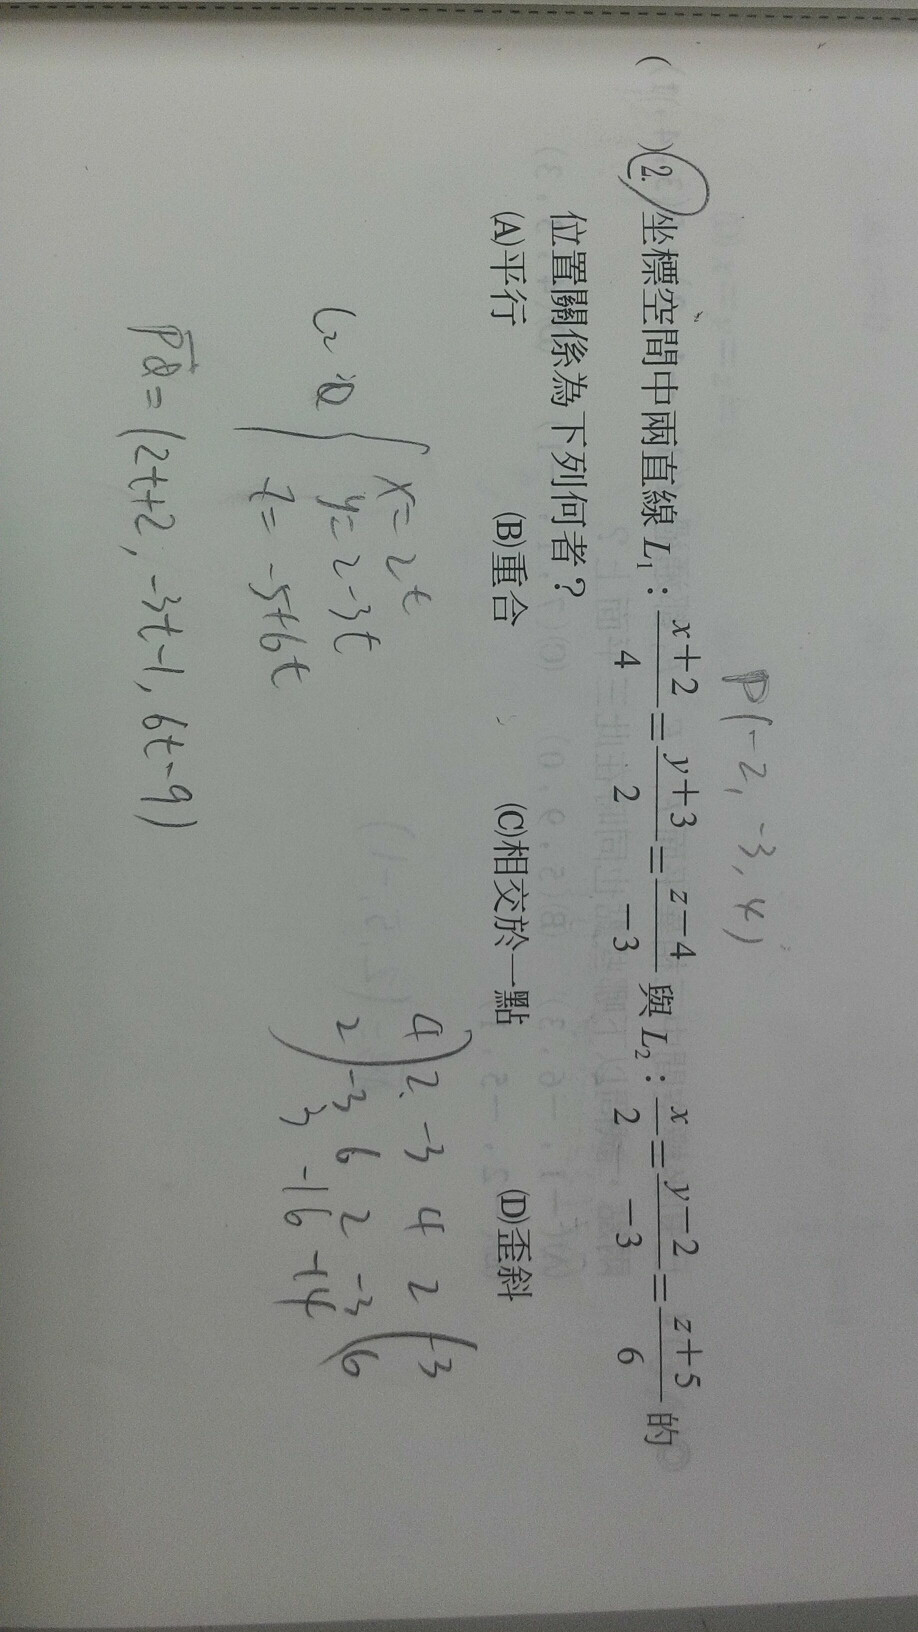 P(-2, -3, 4)
( )2. 坐標空間中兩直線 L₁：(x+2)/4=(y+3)/2=(z-4)/-3 與 L₂：x/2=(y-2)/-3=(z+5)/6 的
位置關係為下列何者？
(A)平行 (B)重合 (C)相交於一點 (D)歪斜
4 2 -3 4 2 -3
2 -3 6 2 -3 6
3 -16 -14
x=2t
y=2-3t
z=-5+6t
PQ=(2t+2, -3t-1, 6t-9)